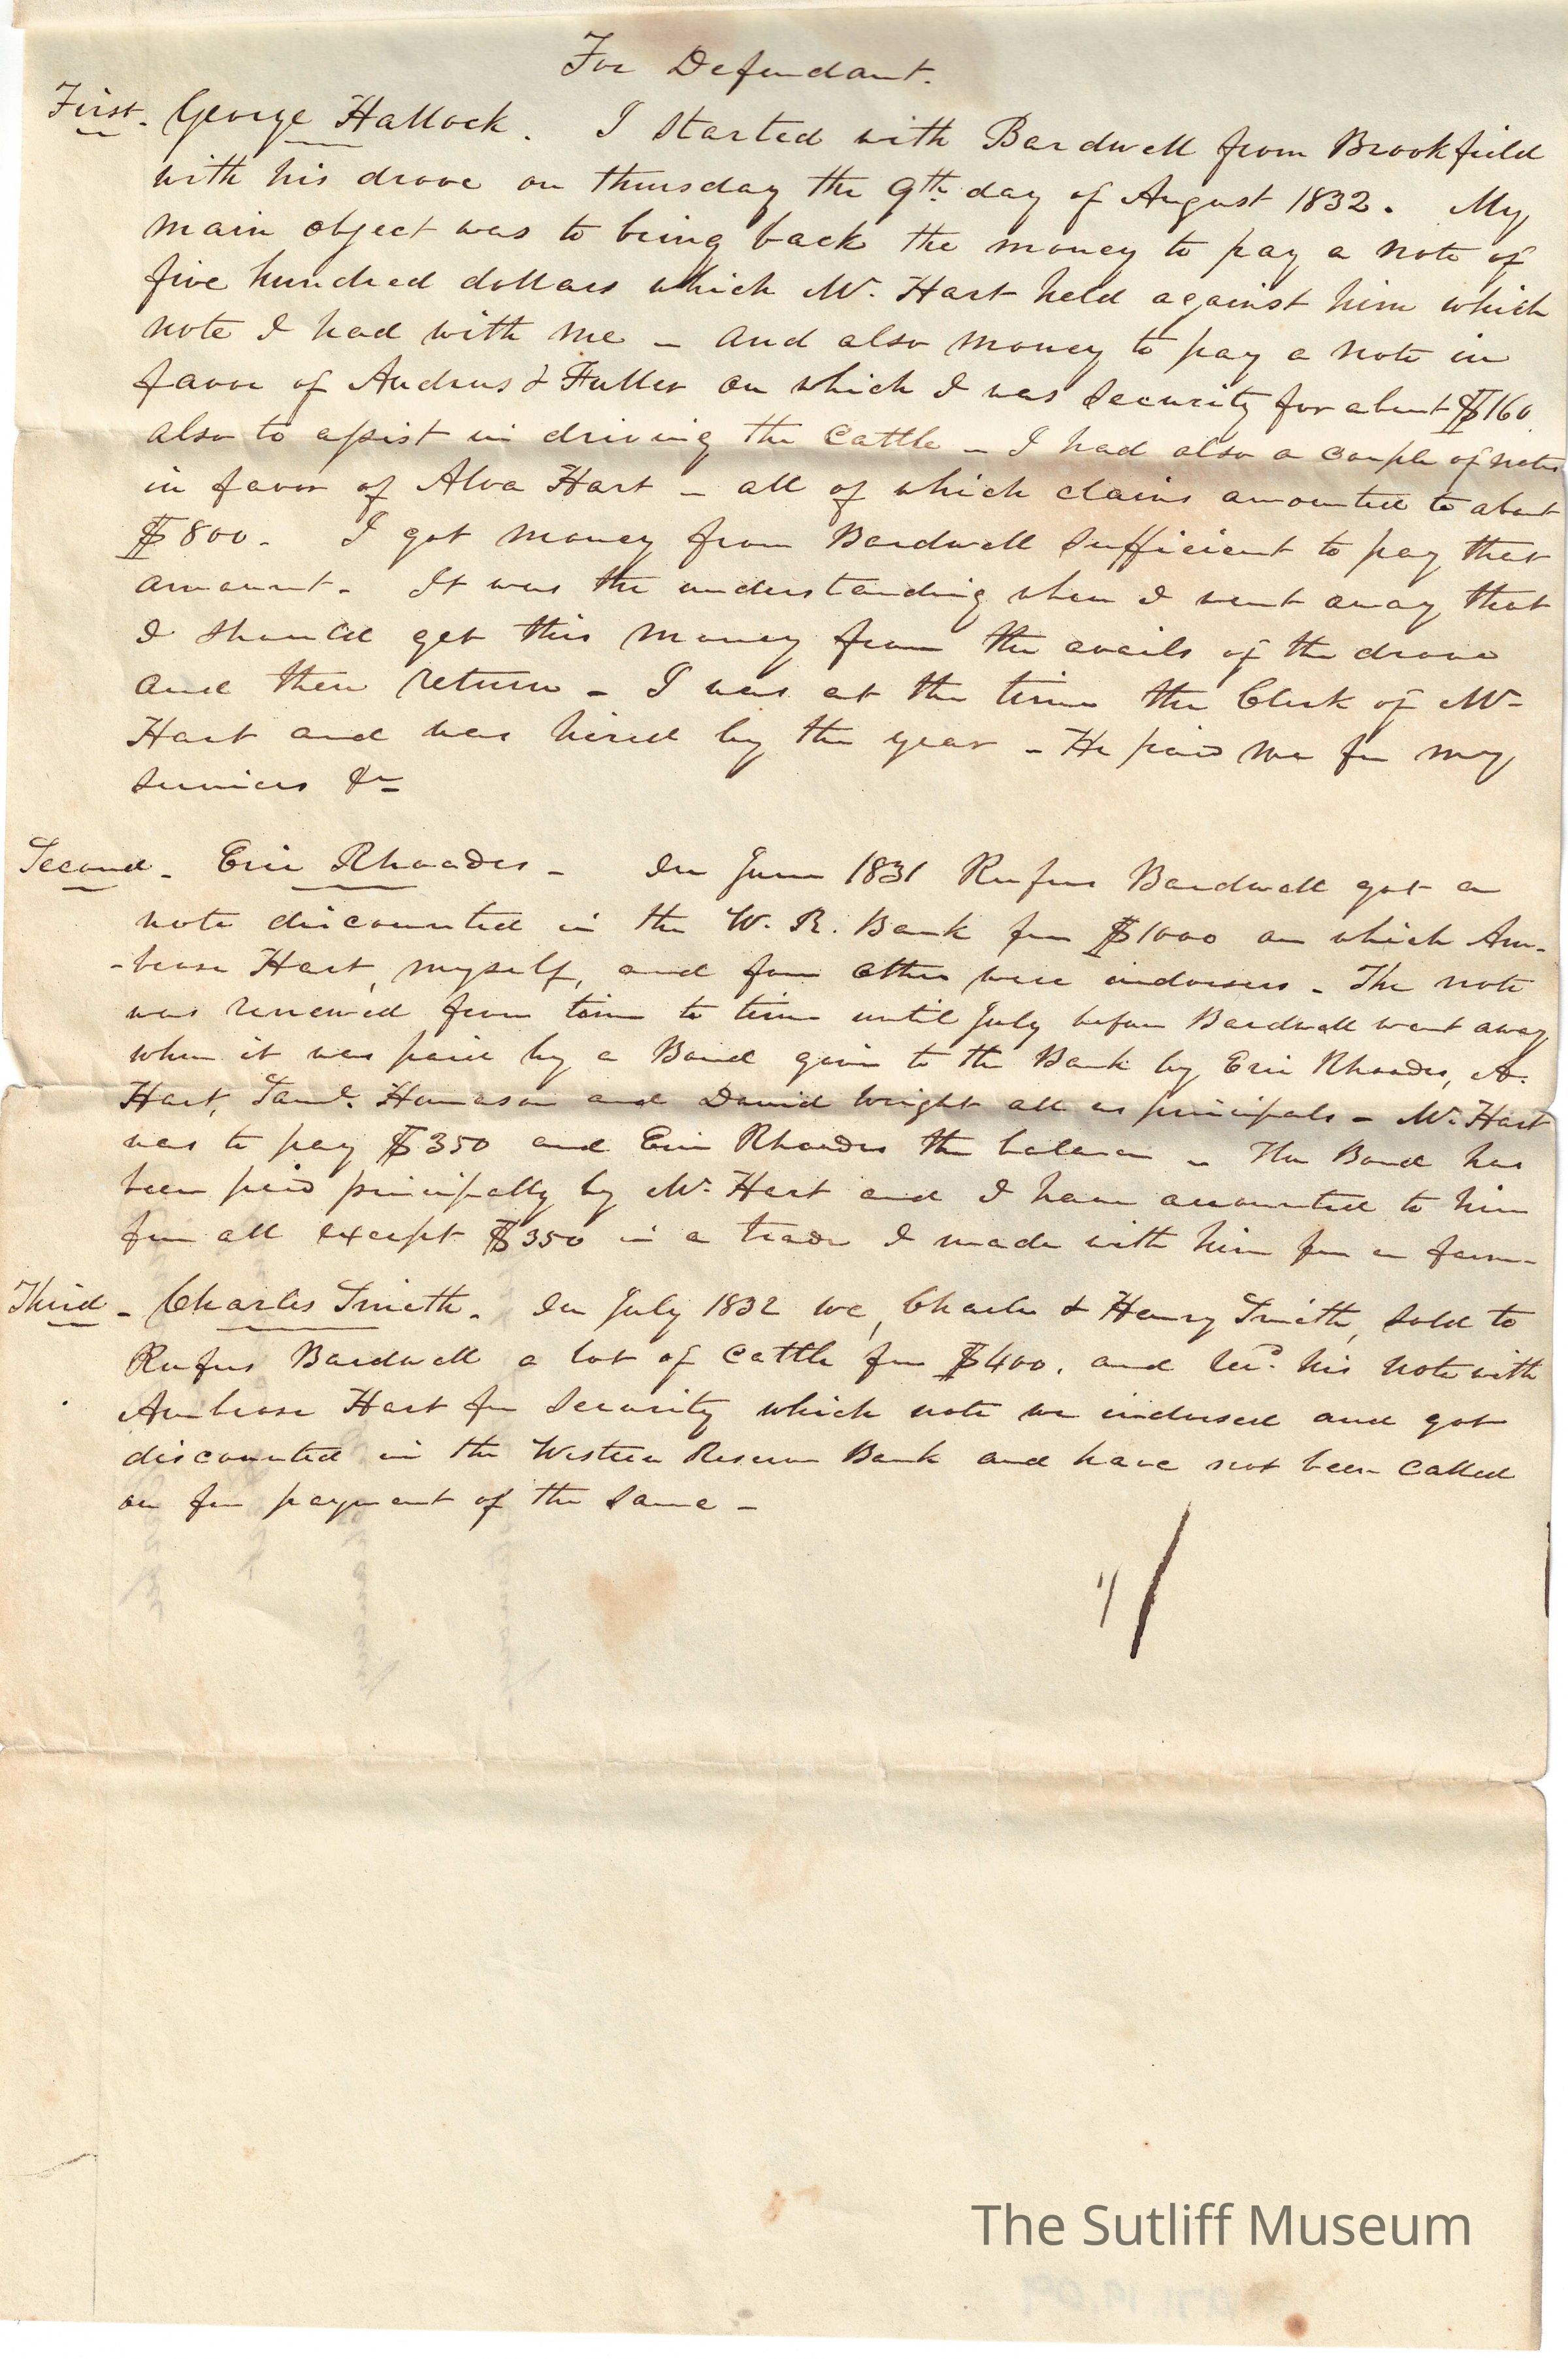 For Defendant.
First. George Hallock. I started with Bardwell from Brookfield
with his drove on thursday the 9th day of August 1832. My
main object was to bring back the money to pay a note of
five hundred dollars which Mr. Hart held against him which
note I had with me – and also money to pay a note in
favor of Andrus & Fuller on which I was Security for about $160.
also to assist in driving the Cattle – I had also a couple of notes
in favor of Alva Hart – all of which claims amounted to about
$800. I got money from Bardwell sufficient to pay that
amount. It was the understanding when I went away that
I should get this money from the avails of the drove
and then return – I was at the time the Clerk of Mr
Hart and was hired by the year – He paid me for my
services &c
Second – Eric Rhoades – In June 1831 Rufus Bardwell got a
note discounted in the W. R. Bank for $1000 on which Am-
-brose Hart, myself, and four others were indorsers – The note
was renewed from time to time until July before Bardwell went away
when it was paid by a Bond given to the Bank by Eric Rhoades, A.
Hart, Saml. Hamason and David Wright all as principals – Mr. Hart
was to pay $350 and Eric Rhoades the balance – The Bond has
been paid principally by Mr. Hart and I have accounted to him
for all except $350 in a trade I made with him for a farm –
Third – Charles Smith. In July 1832 we, Charles & Henry Smith, sold to
Rufus Bardwell a lot of Cattle for $400. and recd. his note with
Ambrose Hart for Security which note we indorsed and got
discounted in the Western Reserve Bank and have not been called
on for payment of the same –
The Sutliff Museum